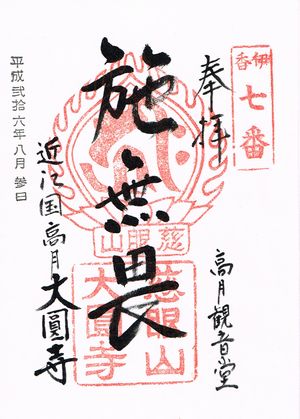 伊香
七番
奉拝
高月観音堂
施無畏
慈眼山
慈眼山
大圓寺
近江国高月大圓寺
平成弐拾六年八月参日